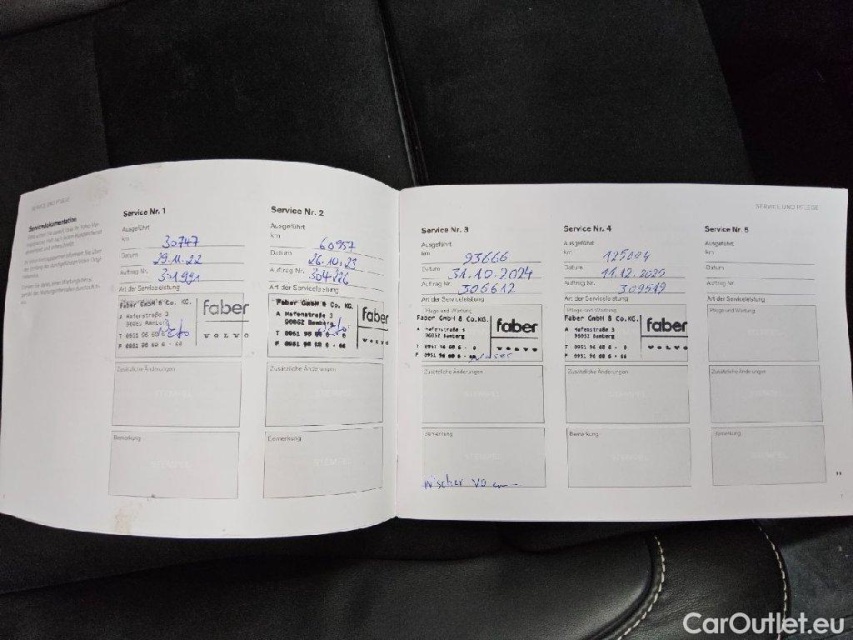 SERVICE UND PFLEGE
Servicedokumentation
Service Nr. 1
Ausgeführt
km
30747
Datum
29.11.22
Auftrag Nr.
301991
Art der Serviceleistung
Faber GmbH & Co. KG.
A Hafenstraße 3
96052 Bamberg
T 0951 96 60 6 - 0
F 0951 96 60 6 - 60
faber
VOLVO
Zusätzliche Änderungen
STEMPEL
Bemerkung
STEMPEL
Service Nr. 2
Ausgeführt
km
60957
Datum
26.10.23
Auftrag Nr.
Art der Serviceleistung
Faber GmbH & Co. KG.
A Hafenstraße 3
96052 Bamberg
T 0951 96 60 6 - 0
F 0951 96 60 6 - 60
faber
Zusätzliche Änderungen
Bemerkung
STEMPEL
SERVICE UND PFLEGE
Service Nr. 3
Ausgeführt
km
93666
Datum
31.10.2024
Auftrag Nr.
306612
Art der Serviceleistung
Pflege und Wartung
Faber GmbH & Co.KG.
A Hafenstraße 3
96052 Bamberg
T 0951 96 60 6 - 0
F 0951 96 60 6 - 60
faber
VOLVO
Zusätzliche Änderungen
Bemerkung
wischer vo
Service Nr. 4
Ausgeführt
km
Datum
11.12.2025
Auftrag Nr.
309519
Art der Serviceleistung
Pflege und Wartung
Faber GmbH & Co. KG.
A Hafenstraße 3
96052 Bamberg
T 0951 96 60 6 - 0
F 0951 96 60 6 - 60
faber
VOLVO
Zusätzliche Änderungen
Bemerkung
Service Nr. 5
Ausgeführt
km
Datum
Auftrag Nr.
Art der Serviceleistung
Pflege und Wartung
Zusätzliche Änderungen
Bemerkung
CarOutlet.eu